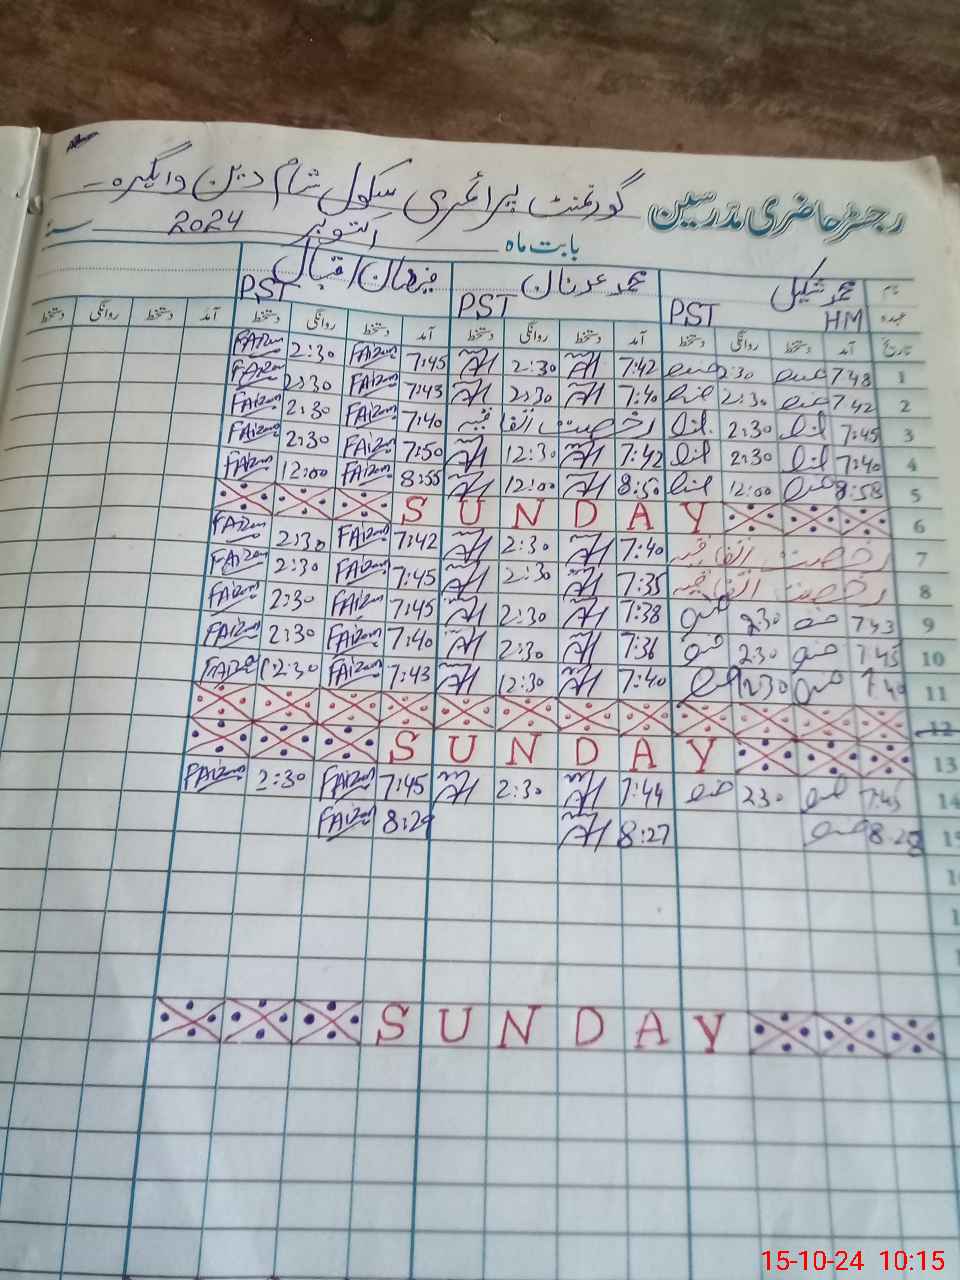 رجسٹر حاضری مدرسین گورنمنٹ پرائمری سکول شام دین واگیره
بابت ماہ اکتوبر 2024 سنہ
نام محمد شکیل محمد عدنان
عہدہ HM PST PST PST
تاریخ آمد دستخط روانگی دستخط آمد دستخط روانگی دستخط آمد دستخط روانگی دستخط آمد دستخط روانگی دستخط
1 7:48 2:30 7:42 AH 2:30 AH 7:45 FAizan 2:30 FAizan
2 7:42 2:30 7:40 AH 2:30 AH 7:43 FAizan 2:30 FAizan
3 7:45 2:30 رخصت اتفاقیہ 7:40 FAizan 2:30 FAizan
4 7:40 2:30 7:42 AH 12:30 AH 7:50 FAizan 2:30 FAizan
5 8:58 12:00 8:50 AH 12:00 AH 8:55 FAizan 12:00 FAizan
6 SUNDAY
7 رخصت اتفاقیہ 7:40 AH 2:30 AH 7:42 FAizan 2:30 FAizan
8 رخصت اتفاقیہ 7:35 AH 2:30 AH 7:45 FAizan 2:30 FAizan
9 7:43 2:30 7:38 AH 2:30 AH 7:45 FAizan 2:30 FAizan
10 7:45 2:30 7:36 AH 2:30 AH 7:40 FAizan 2:30 FAizan
11 7:40 12:30 7:40 AH 12:30 AH 7:43 FAizan 12:30 FAizan
12
13 SUNDAY
14 7:45 2:30 7:44 AH 2:30 AH 7:45 FAizan 2:30 FAizan
15 8:28 8:27 AH FAizan
SUNDAY
15-10-24 10:15